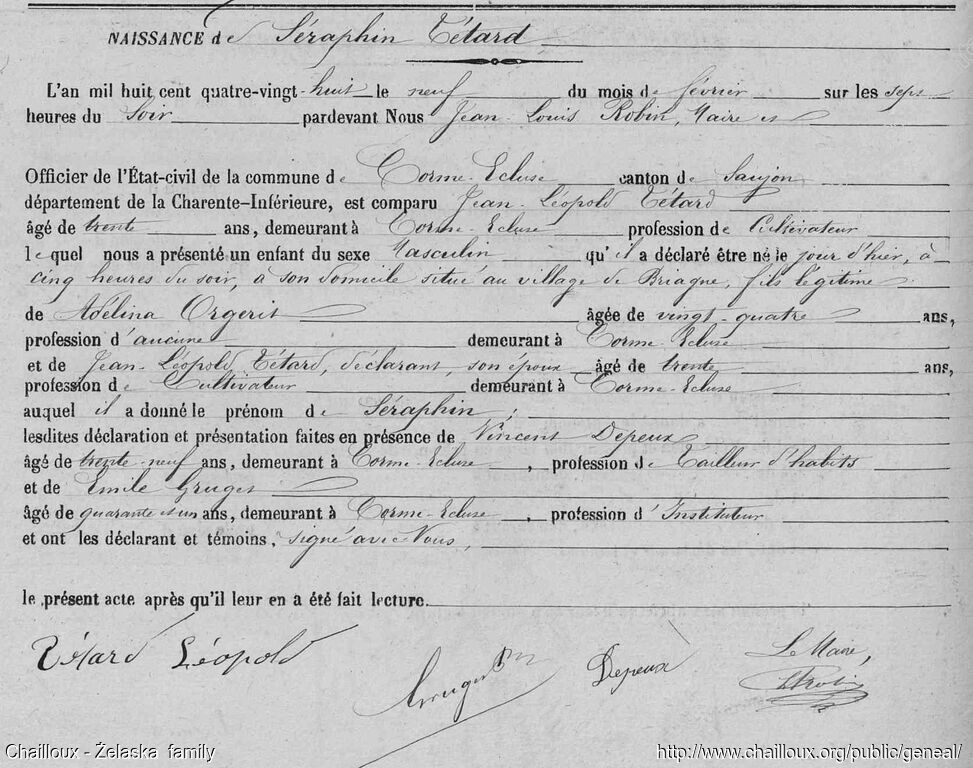 NAISSANCE de Séraphin Tétard
L'an mil huit cent quatre-vingt-huit le neuf du mois de février sur les sept
heures du Soir pardevant Nous Jean-Louis Robin, Maire et
Officier de l'État-civil de la commune de Corme-Ecluse canton de Saujon
département de la Charente-Inférieure, est comparu Jean-Léopold Tétard
âgé de trente ans, demeurant à Corme-Ecluse profession de Cultivateur
lequel nous a présenté un enfant du sexe Masculin qu'il a déclaré être né le jour d'hier, à
cinq heures du soir, à son domicile situé au village de Briagne, fils légitime
de Adélina Orgerit âgée de vingt-quatre ans,
profession d'aucune demeurant à Corme-Ecluse
et de Jean-Léopold Tétard, déclarant, son époux âgé de trente ans,
profession de Cultivateur demeurant à Corme-Ecluse
auquel il a donné le prénom de Séraphin ;
lesdites déclaration et présentation faites en présence de Vincent Depeux
âgé de trente-neuf ans, demeurant à Corme-Ecluse, profession de Tailleur d'habits
et de Emile Gruges
âgé de quarante et un ans, demeurant à Corme-Ecluse, profession d'Instituteur
et ont les déclarant et témoins, signé avec Nous,
le présent acte après qu'il leur en a été fait lecture.
Tétard Léopold
Depeux
Le Maire,
Robin
Chailloux - Żelaska family
http://www.chailloux.org/public/geneal/